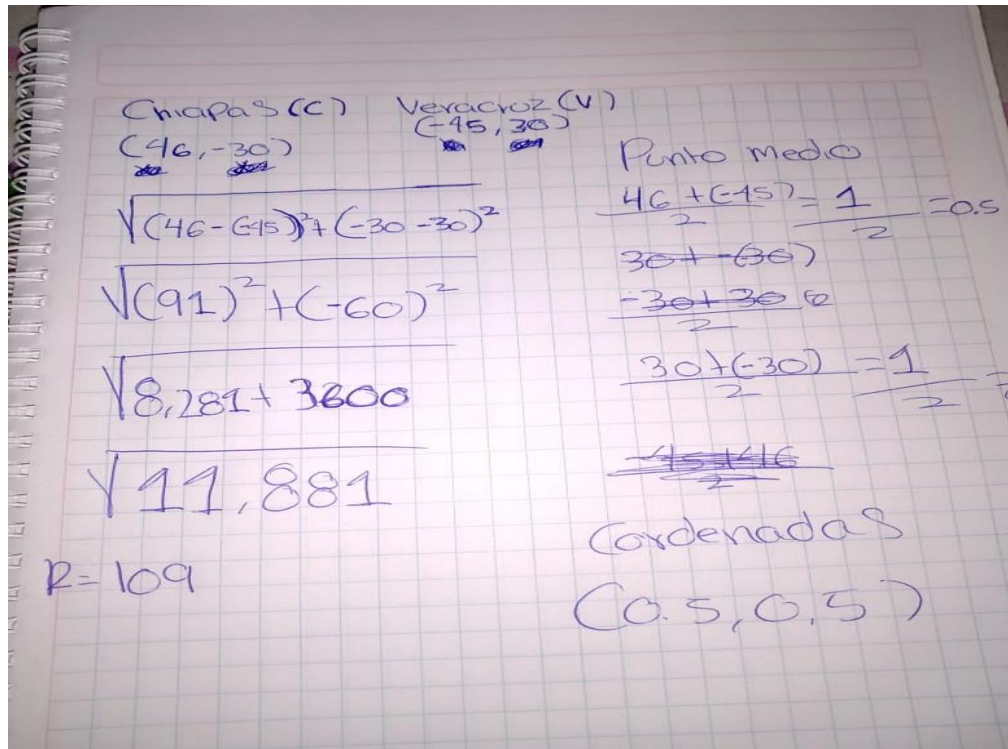 Chiapas (C) Veracruz (V)
(46, -30) (-45, 30)
√(46-(-45))²+(-30-30)²
√(91)²+(-60)²
√8,281+3600
√11,881
R= 109
Punto medio
46+(-45)/2 = 1/2 = 0.5
30+-(30)
-30+30/2
30+(-30)/2 = 1/2 =
-45+46/2
Cordenadas
(0.5, 0.5)